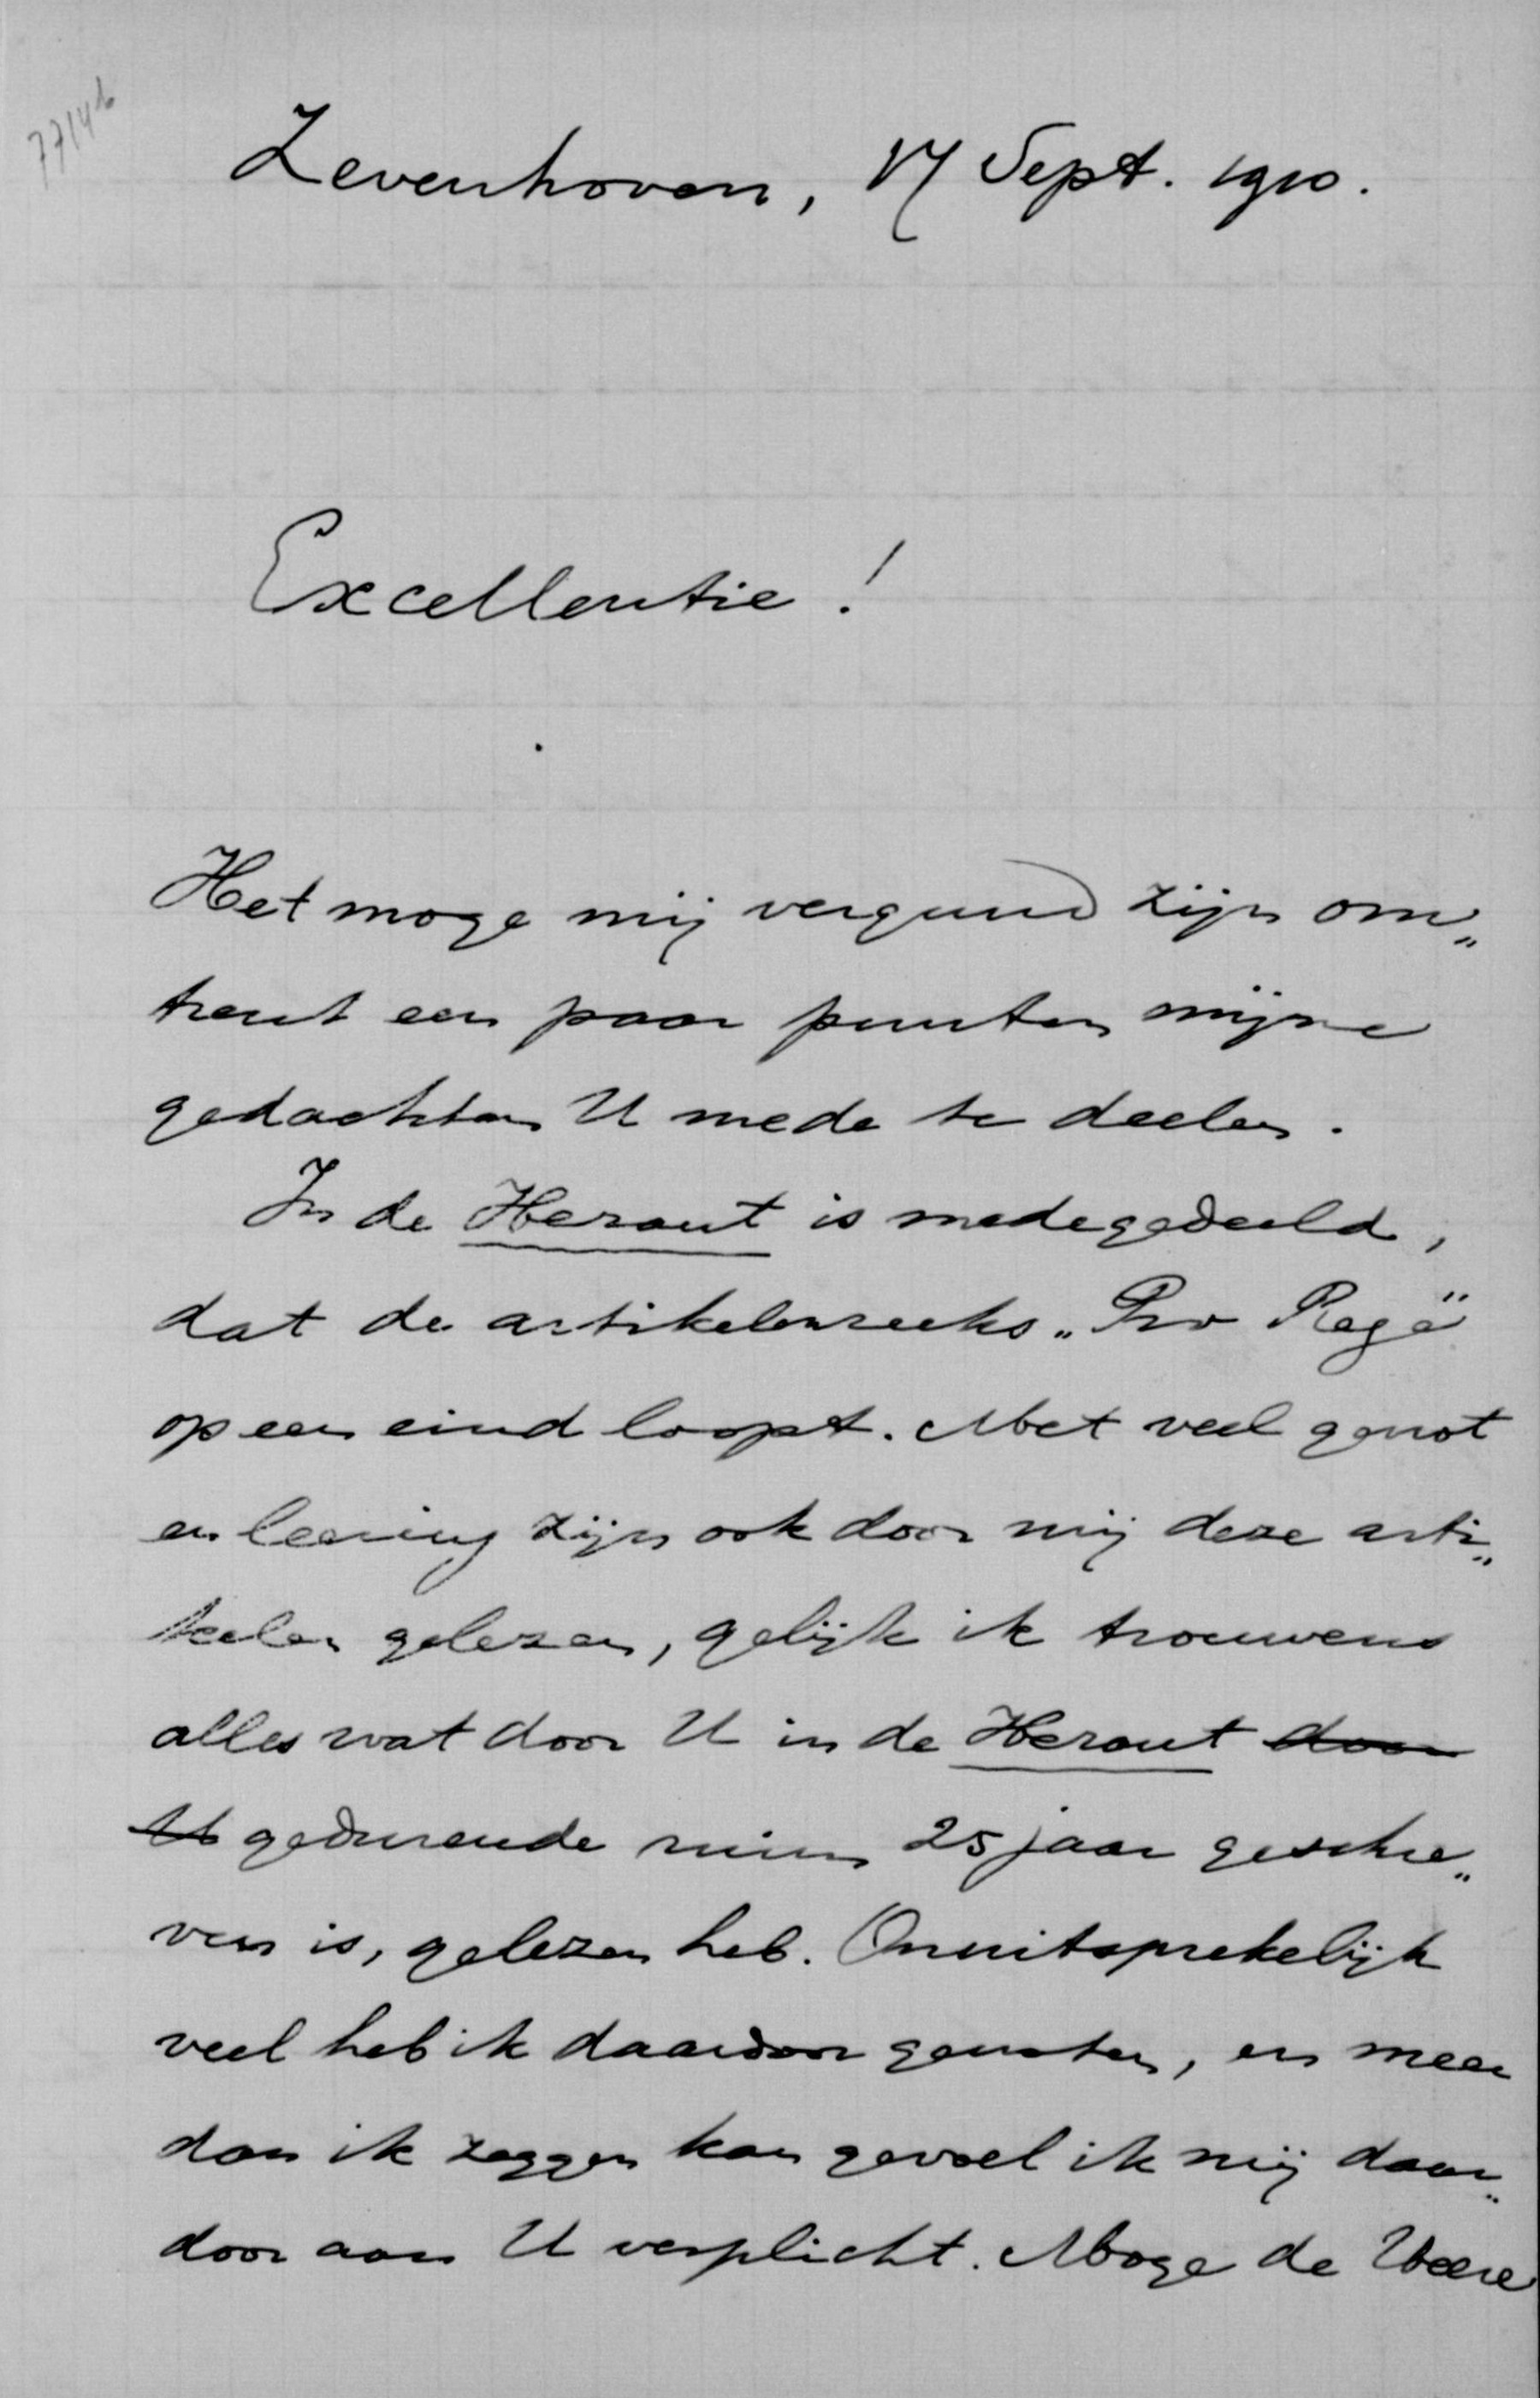 7714b
Zevenhoven, 17 Sept. 1910.
Excellentie!
Het moge mij vergund zijn om„
trent een paar punten mijne
gedachten U mede te deelen.
In de Heraut is medegedeeld,
dat de artikelenreeks „Pro Rege"
op een eind loopt. Met veel genot
en leering zijn ook door mij deze arti„
kelen gelezen, gelijk ik trouwens
alles wat door U in de Heraut door
U gedurende ruim 25 jaar geschre„
ven is, gelezen heb. Onuitsprekelijk
veel heb ik daardoor genoten, en meer
dan ik zeggen kan gevoel ik mij daar„
door aan U verplicht. Moge de Heere